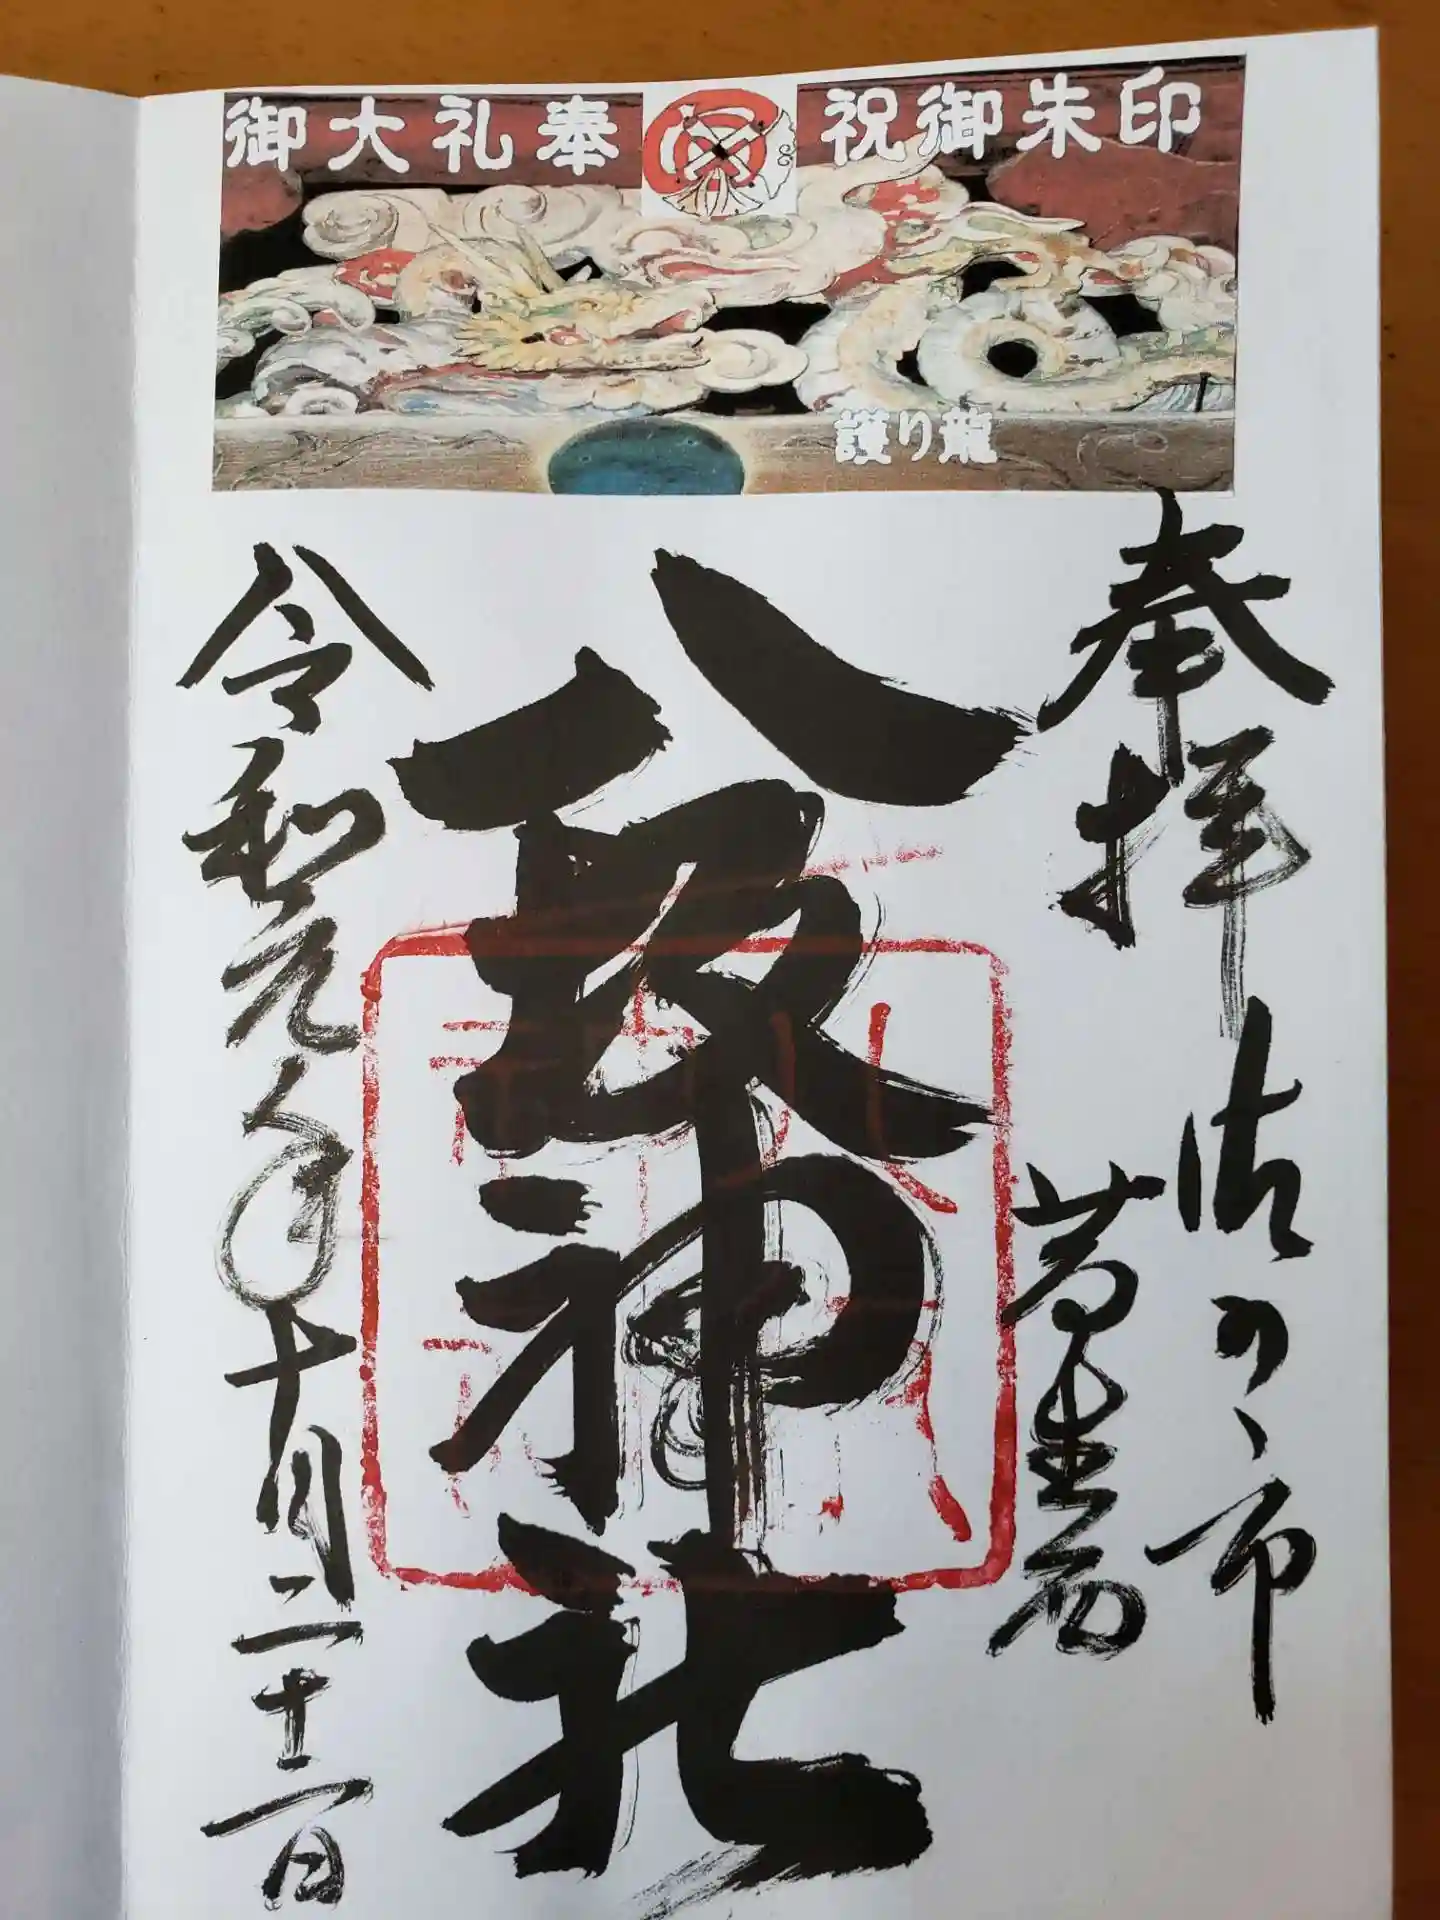 御大礼奉祝御朱印
護り龍
奉拝 佐の市
葛生
八坂神社
令和元年十月二十二日